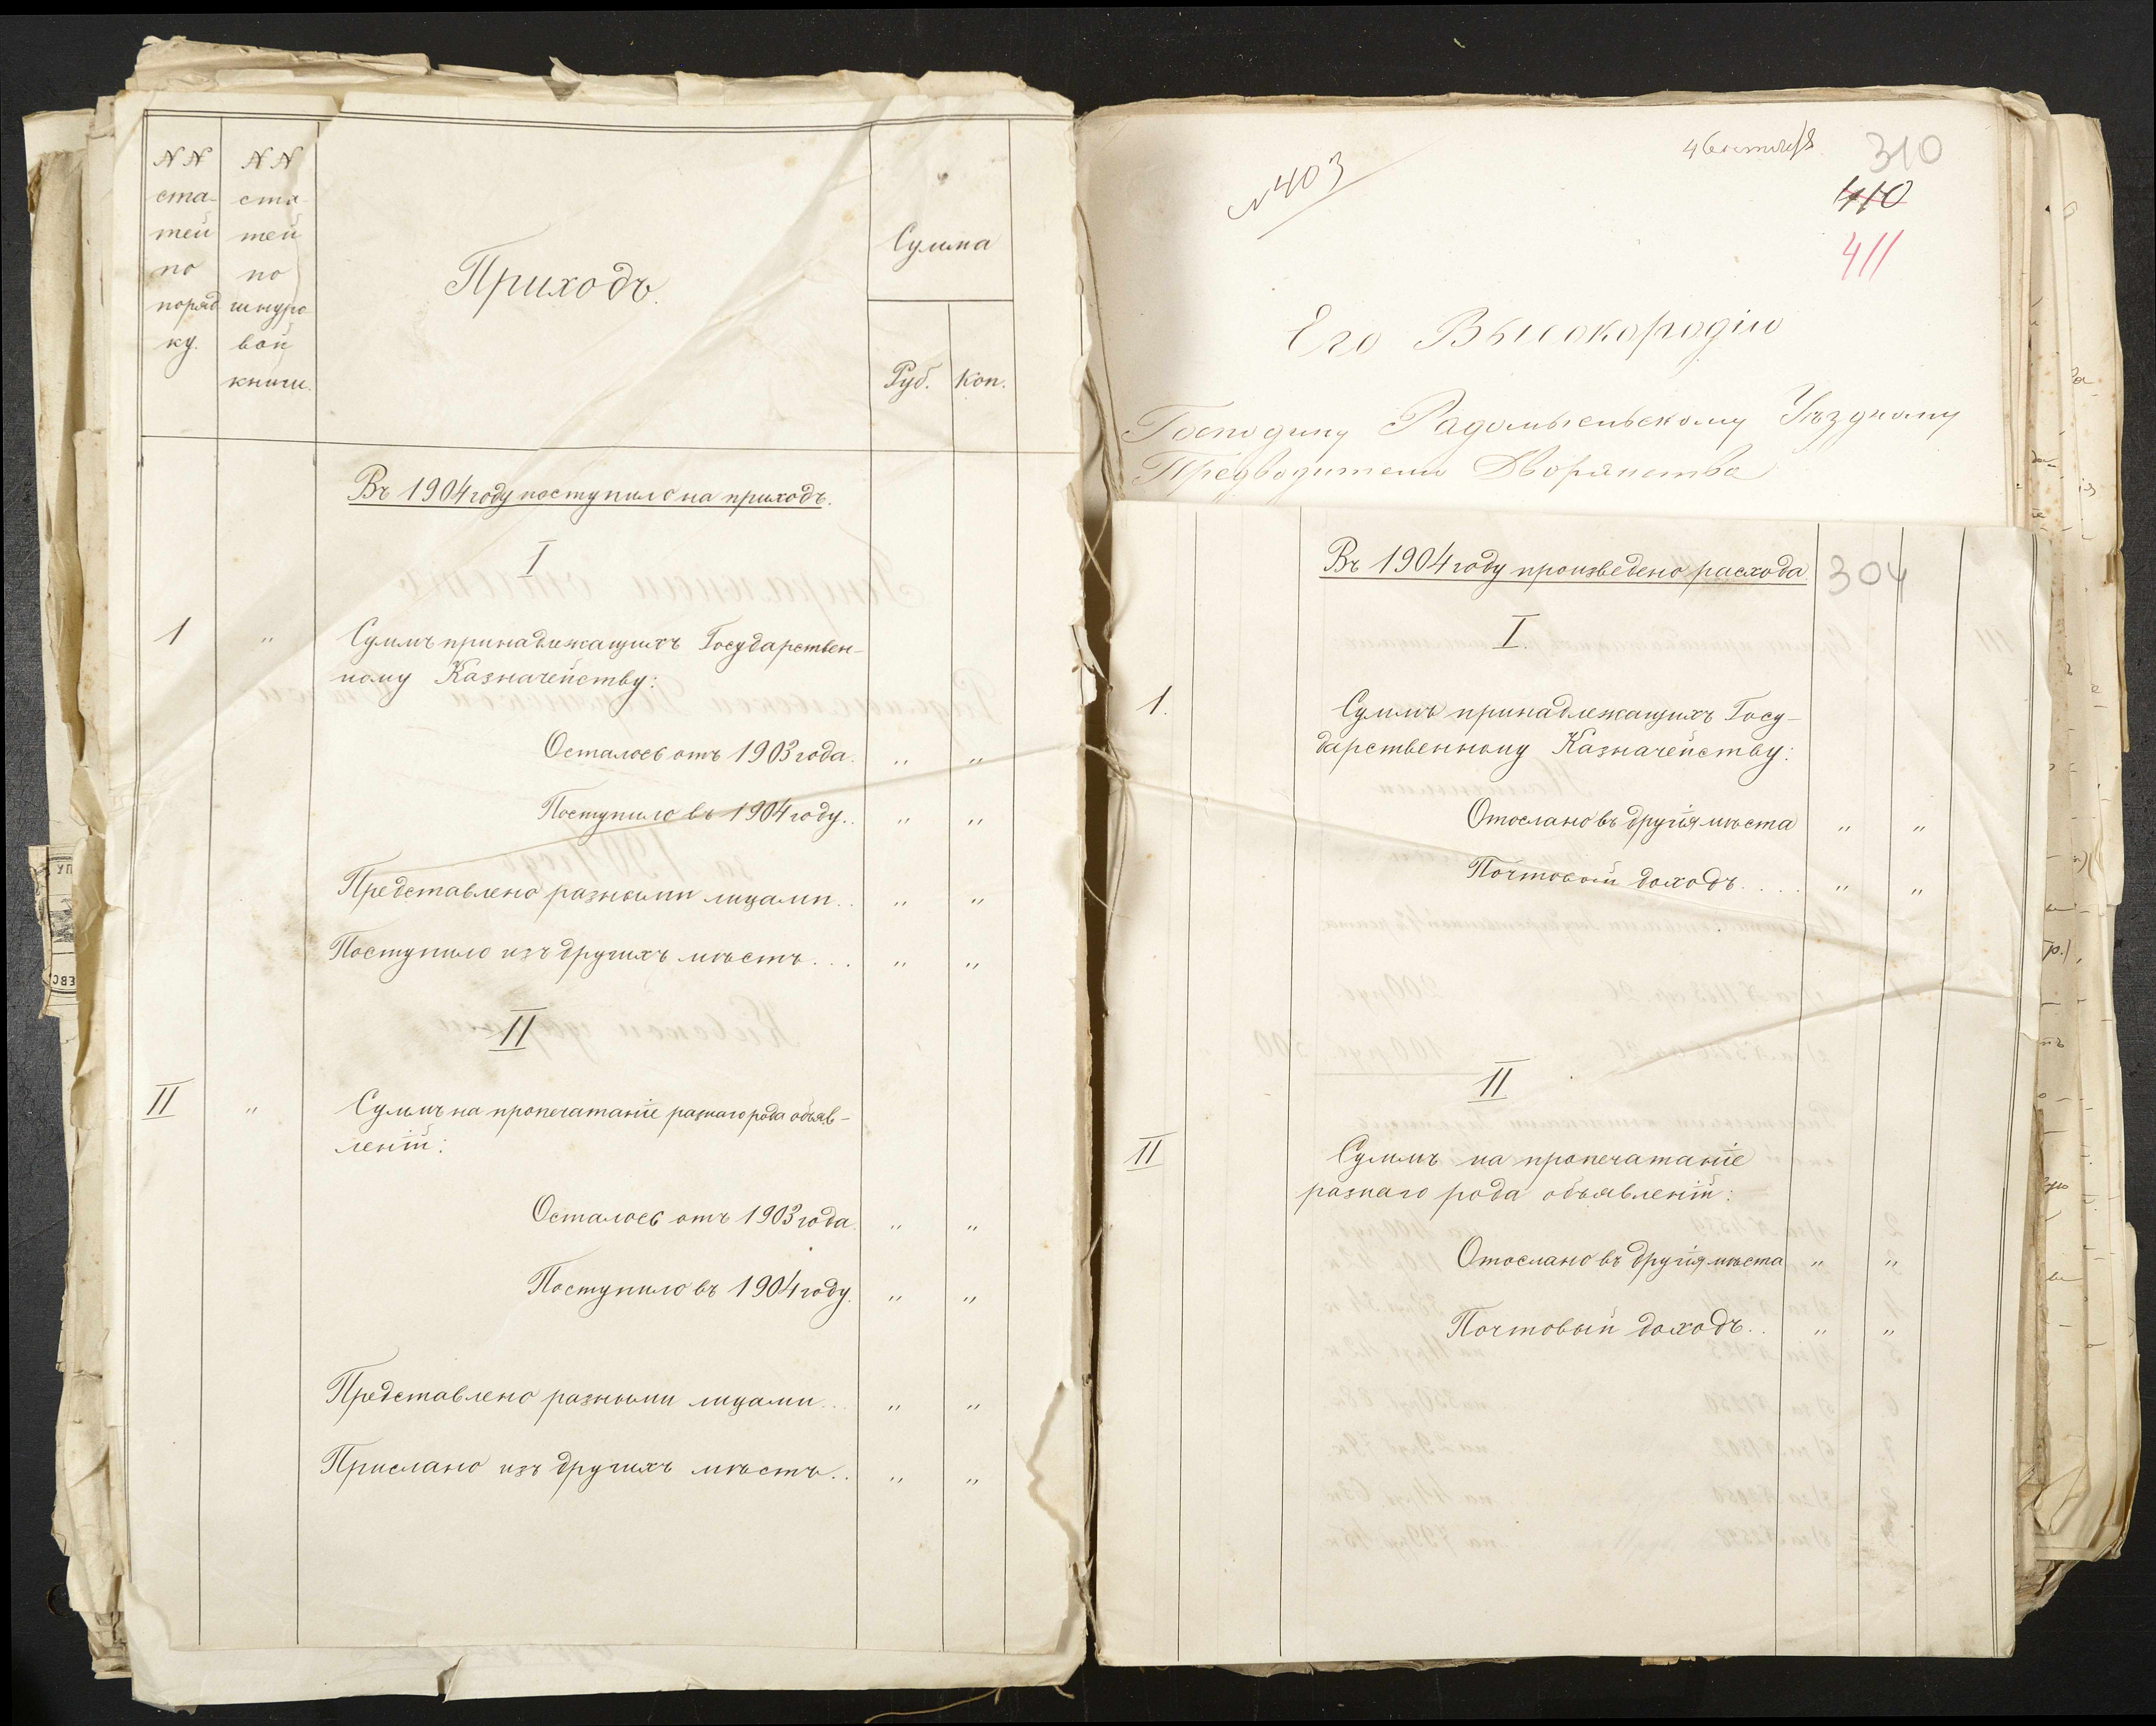 №№ ста-
тей
по
поряд
ку.
№№ ста
тей
по
шнуро
вой
книги.
Приходъ.
Сумма
Руб. Коп.
Въ 1904 году поступило на приходъ.
I
1 " Суммъ принадлежащихъ Государствен-
ному Казначейству:
Осталось отъ 1903 года. " "
Поступило въ 1904 году.. " "
Представлено разными лицами.. " "
Поступило изъ другихъ мѣстъ... " "
II
II " Суммъ на пропечатаніе разнаго рода объяв-
леній:
Осталось отъ 1903 года. " "
Поступило въ 1904 году. " "
Представлено разными лицами... " "
Прислано изъ другихъ мѣстъ.. " "
№ 403
310
410
411
Его Высокородію
Господину Радомысльскому Уѣздному
Предводителю Дворянства
Въ 1904 году произведено расхода
304
I.
1. Суммъ принадлежащихъ Госу-
дарственному Казначейству:
Отослано въ другія мѣста " "
Почтовый доходъ.... " "
II
II Суммъ на пропечатаніе
разнаго рода объявленій:
Отослано въ другія мѣста " "
Почтовый доходъ.. " "